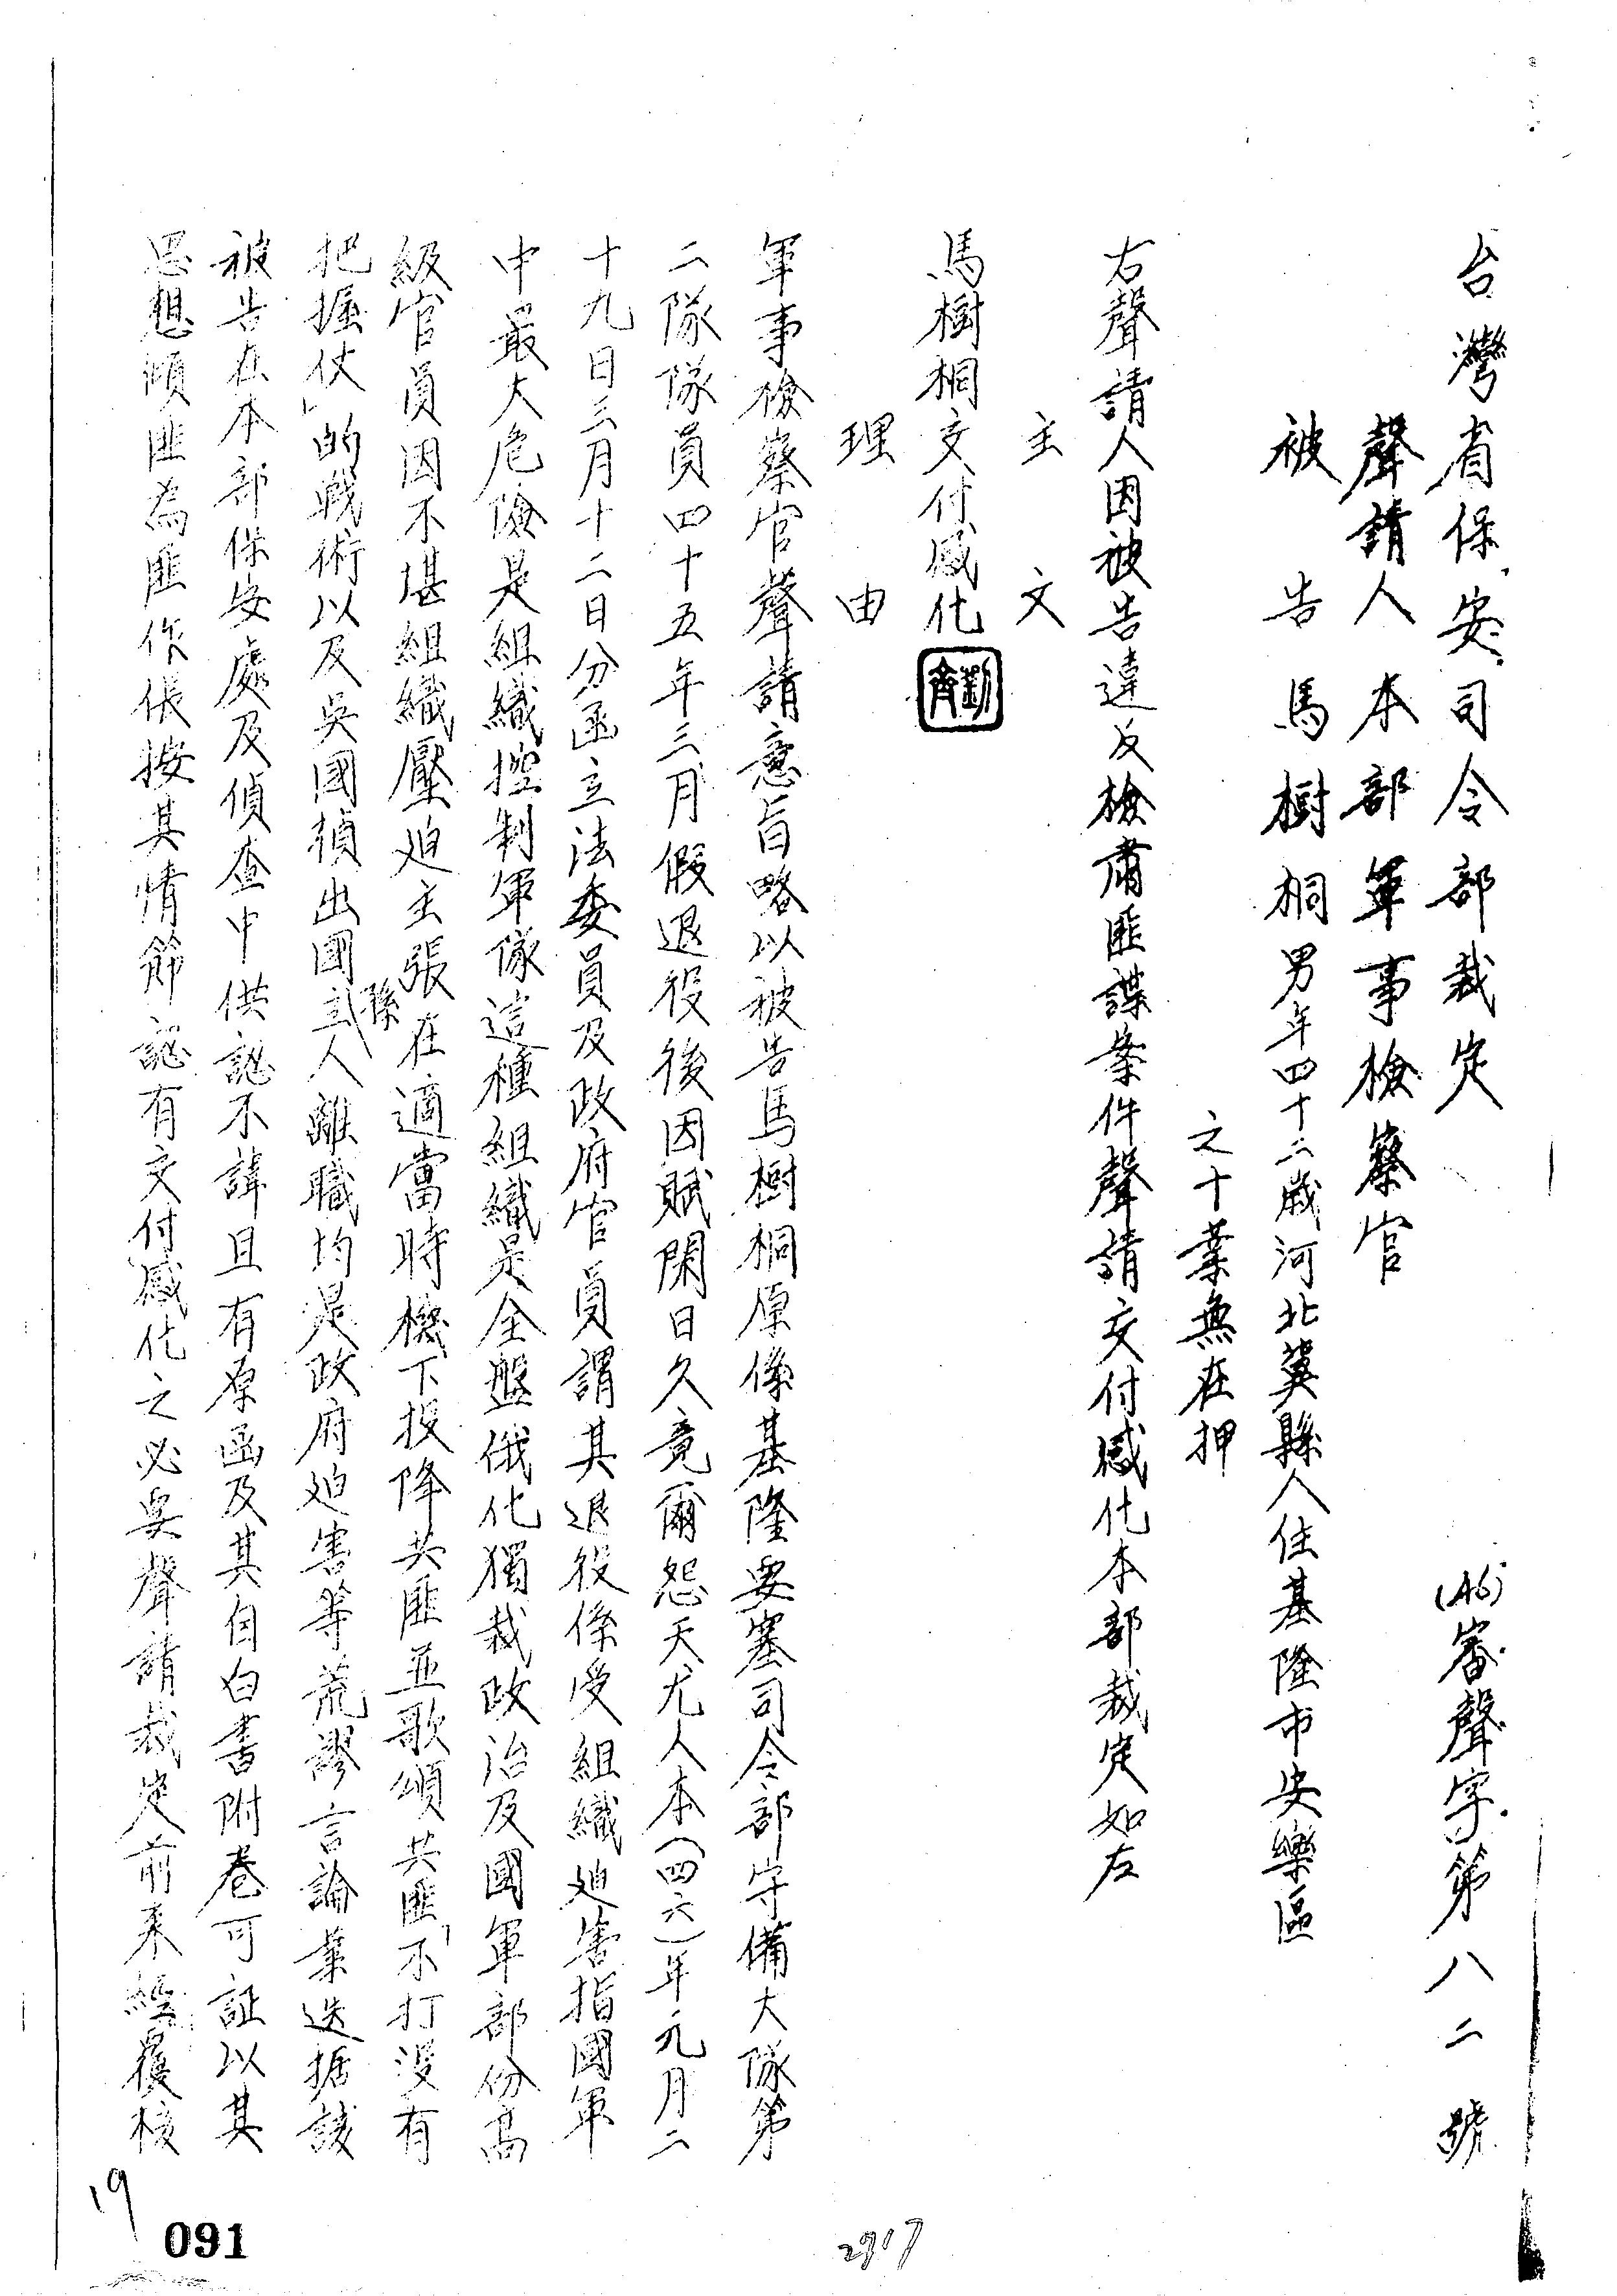 台灣省保安司令部裁定
(46)審聲字第八二號
聲請人 本部軍事檢察官
被告 馬樹桐 男年四十二歲河北冀縣人住基隆市安樂區
之十業無在押
右聲請人因被告違反檢肅匪諜条件聲請交付感化本部裁定如左
主文
馬樹桐交付感化
理由
軍事檢察官聲請意旨略以被告馬樹桐原係基隆要塞司令部守備大隊第
二隊隊員四十五年三月假退役後因賦閑日久竟爾怨天尤人本(四六)年元月二
十九日三月十二日分函立法委員及政府官員謂其退役係受組織迫害指國軍
中最大危險是組織控制軍隊這種組織是全盤俄化獨裁政治及國軍部份高
級官員因不堪組織壓迫主張在適當時機下投降共匪並歌頌共匪「不打沒有
把握仗」的戰術以及吳國禎出國孫立人離職均是政府迫害等荒謬言論業迭据該
被告在本部保安處及偵查中供認不諱且有原函及其自白書附卷可証以其
思想傾匪為匪作倀按其情節認有交付感化之必要聲請裁定前來經覆核
19
091
2917